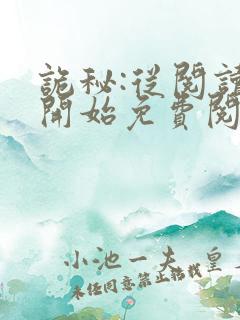 詭秘:從閱讀
開始免費閱
小池一夫 皇
未經同意禁止轉載